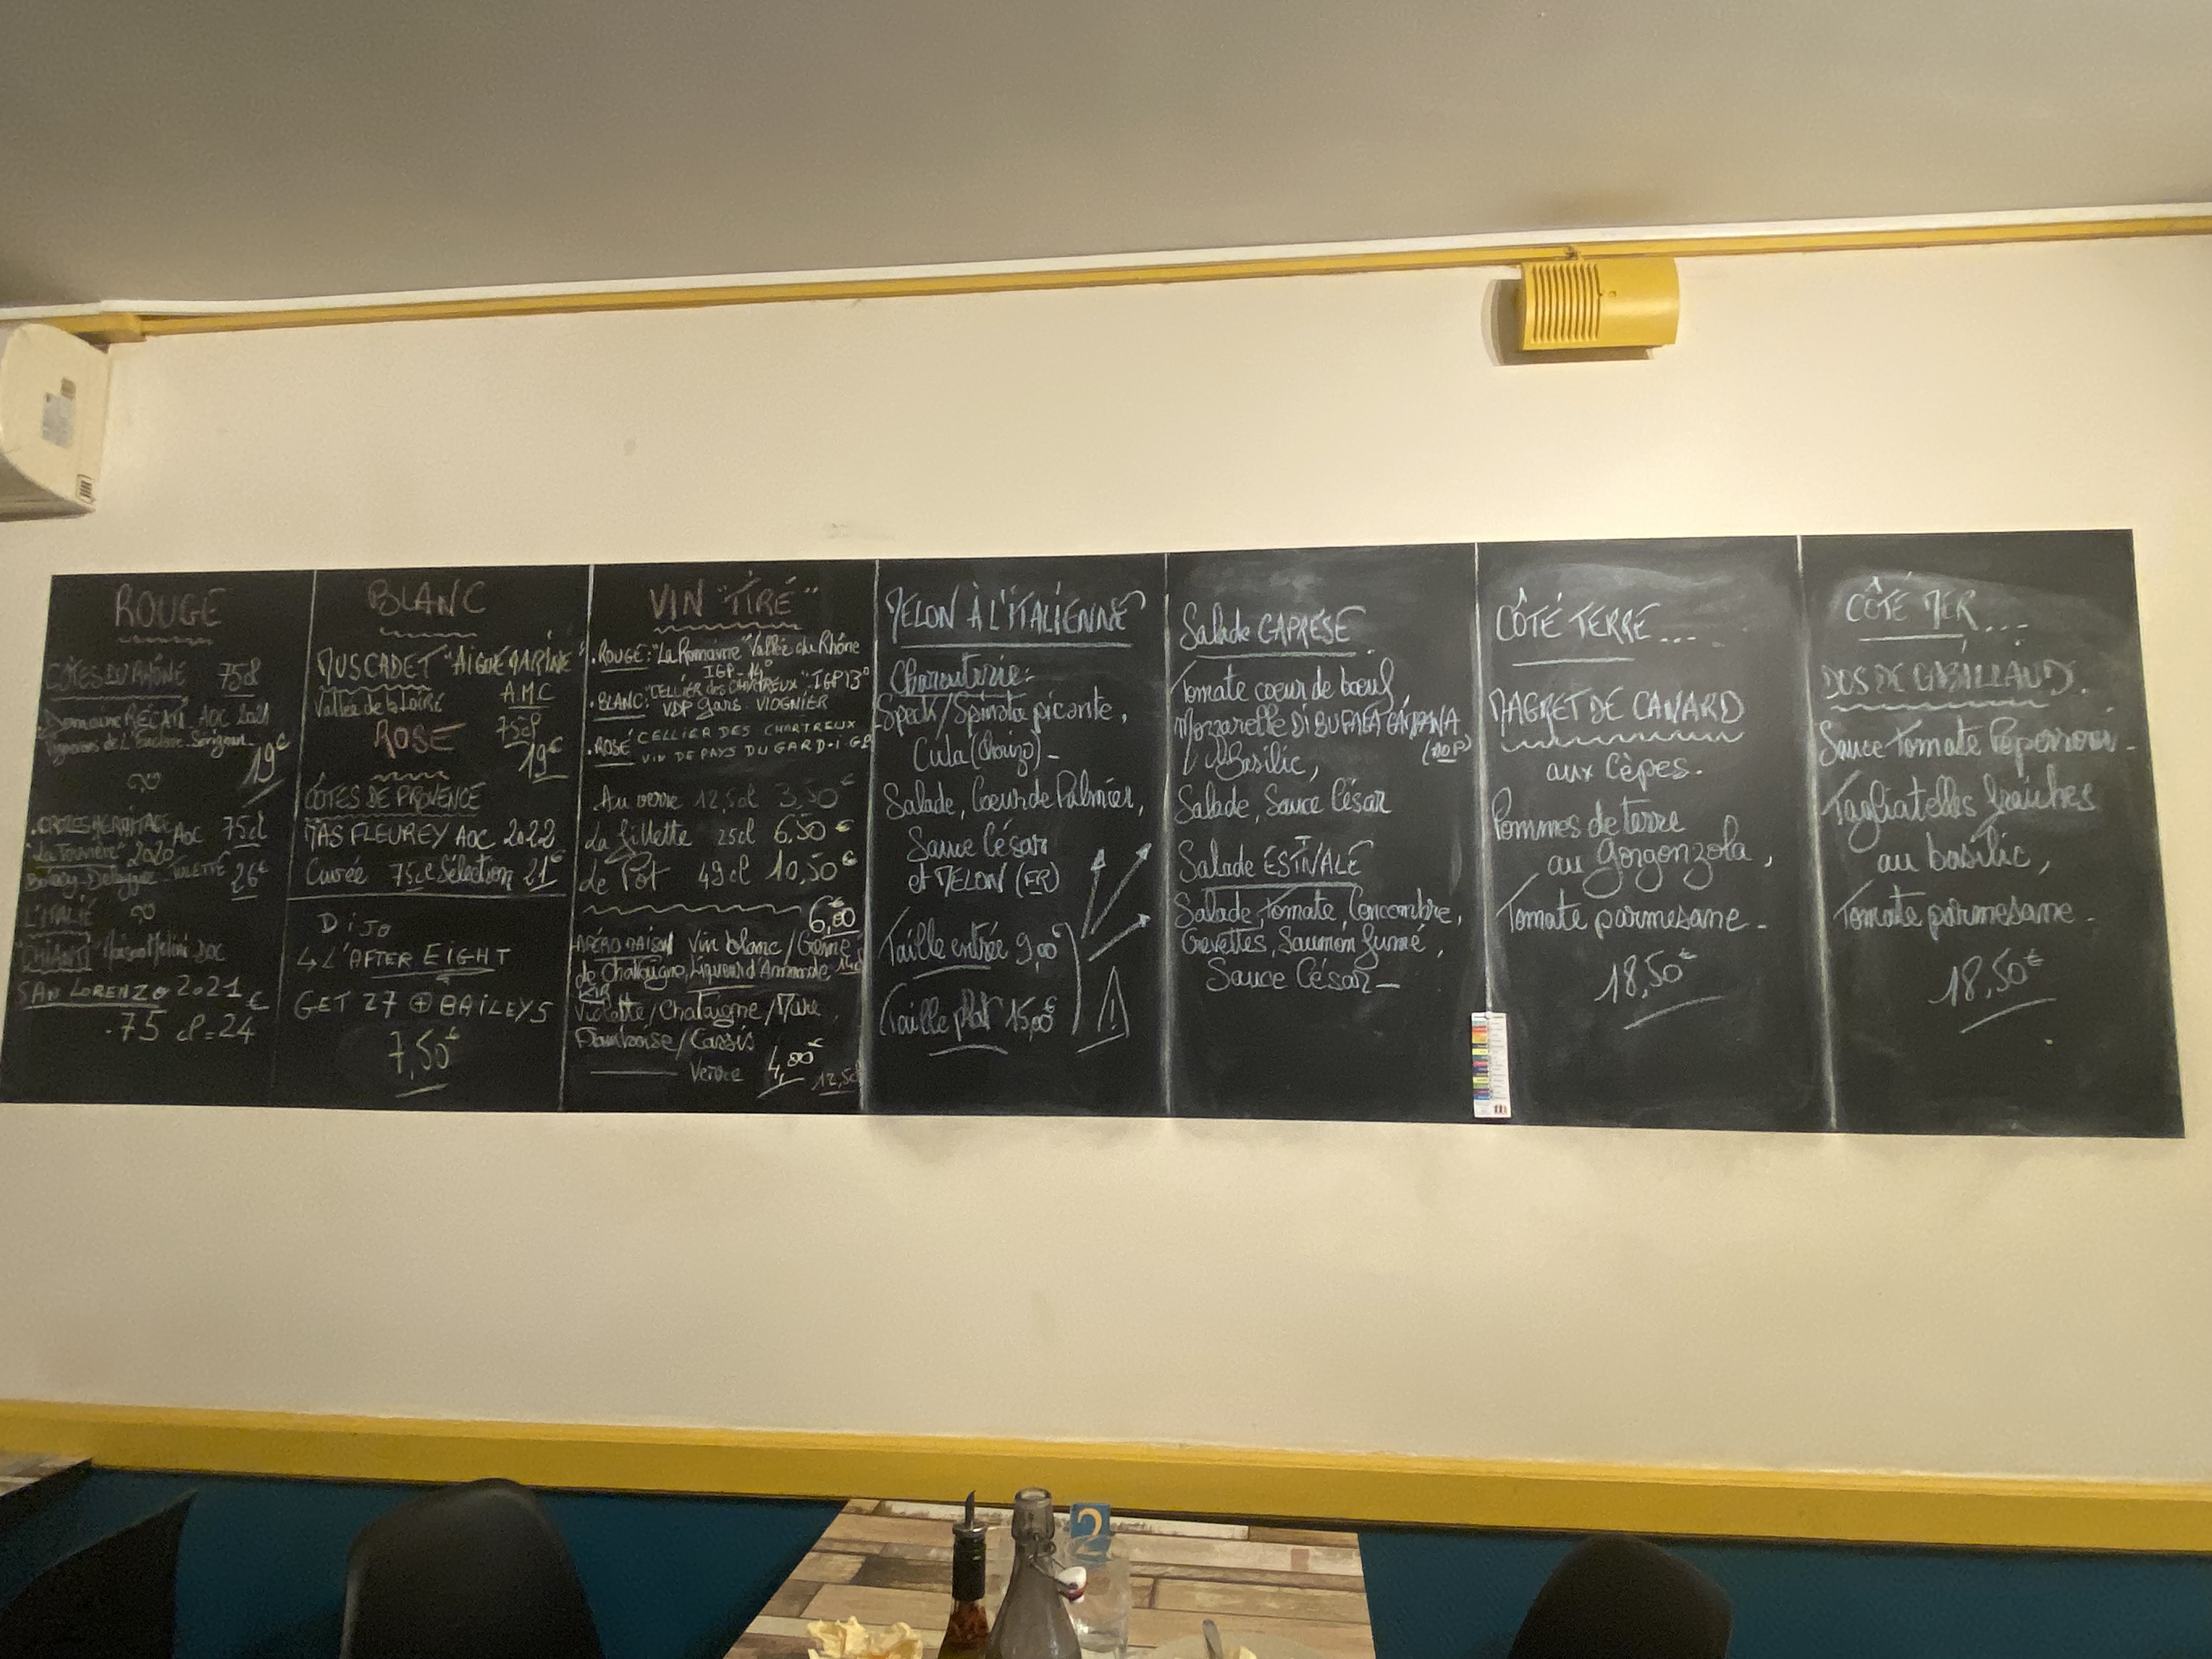 ROUGE
CÔTES DU RHÔNE 75cl
Domaine RÉCATI AOC 2021
Vignerons de L'Enclave
19€
CROZES HERMITAGE AOC 75cl
2020
26€
L'ITALIE
CHIANTI Maison Melini DOC
SAN LORENZO 2021 €
.75 cl = 24
BLANC
MUSCADET "AIGUE MARINE"
Vallée de la Loire A.M.C
75cl
19€
ROSÉ
CÔTES DE PROVENCE
MAS FLEUREY AOC 2022
Cuvée 75cl Sélection 21€
DiJo
↳ L'AFTER EIGHT
GET 27 ⊕ BAILEYS
7,50€
VIN "TIRÉ"
. ROUGE: "La Romaine" Vallée du Rhône
IGP - 14°
. BLANC: "CELLIER des CHARTREUX" IGP 13°
VDP Gard VIOGNIER
. ROSÉ CELLIER DES CHARTREUX
VIN DE PAYS DU GARD - IGP
Au verre 12,5cl 3,50€
La fillette 25cl 6,50€
Le Pot 49cl 10,50€
6,00€
APÉRO MAISON Vin blanc / Crème
de Chataigne, Liqueur d'Amande 14cl
KIR
Violette / Chataigne / Mûre,
Framboise / Cassis
Verre 4,00€ 12,5cl
MELON À L'ITALIENNE
Charcuterie:
Speck / Spinata picante,
Cula (Chorizo) -
Salade, Coeur de Palmier,
Sauce César
et MELON (FR)
Taille entrée 9,00€
Taille plat 15,00€
Salade CAPRESE
Tomate coeur de boeuf,
Mozzarelle DI BUFALA CAMPANA
(AOP)
Basilic,
Salade, Sauce César
Salade ESTIVALE
Salade, Tomate, Concombre,
Crevettes, Saumon fumé,
Sauce César -
CÔTÉ TERRE...
MAGRET DE CANARD
aux Cèpes.
Pommes de terre
au Gorgonzola,
Tomate parmesane -
18,50€
CÔTÉ MER...
DOS DE CABILLAUD.
Sauce Tomate Poperrou -
Tagliatelles fraîches
au basilic,
Tomate parmesane -
18,50€
2